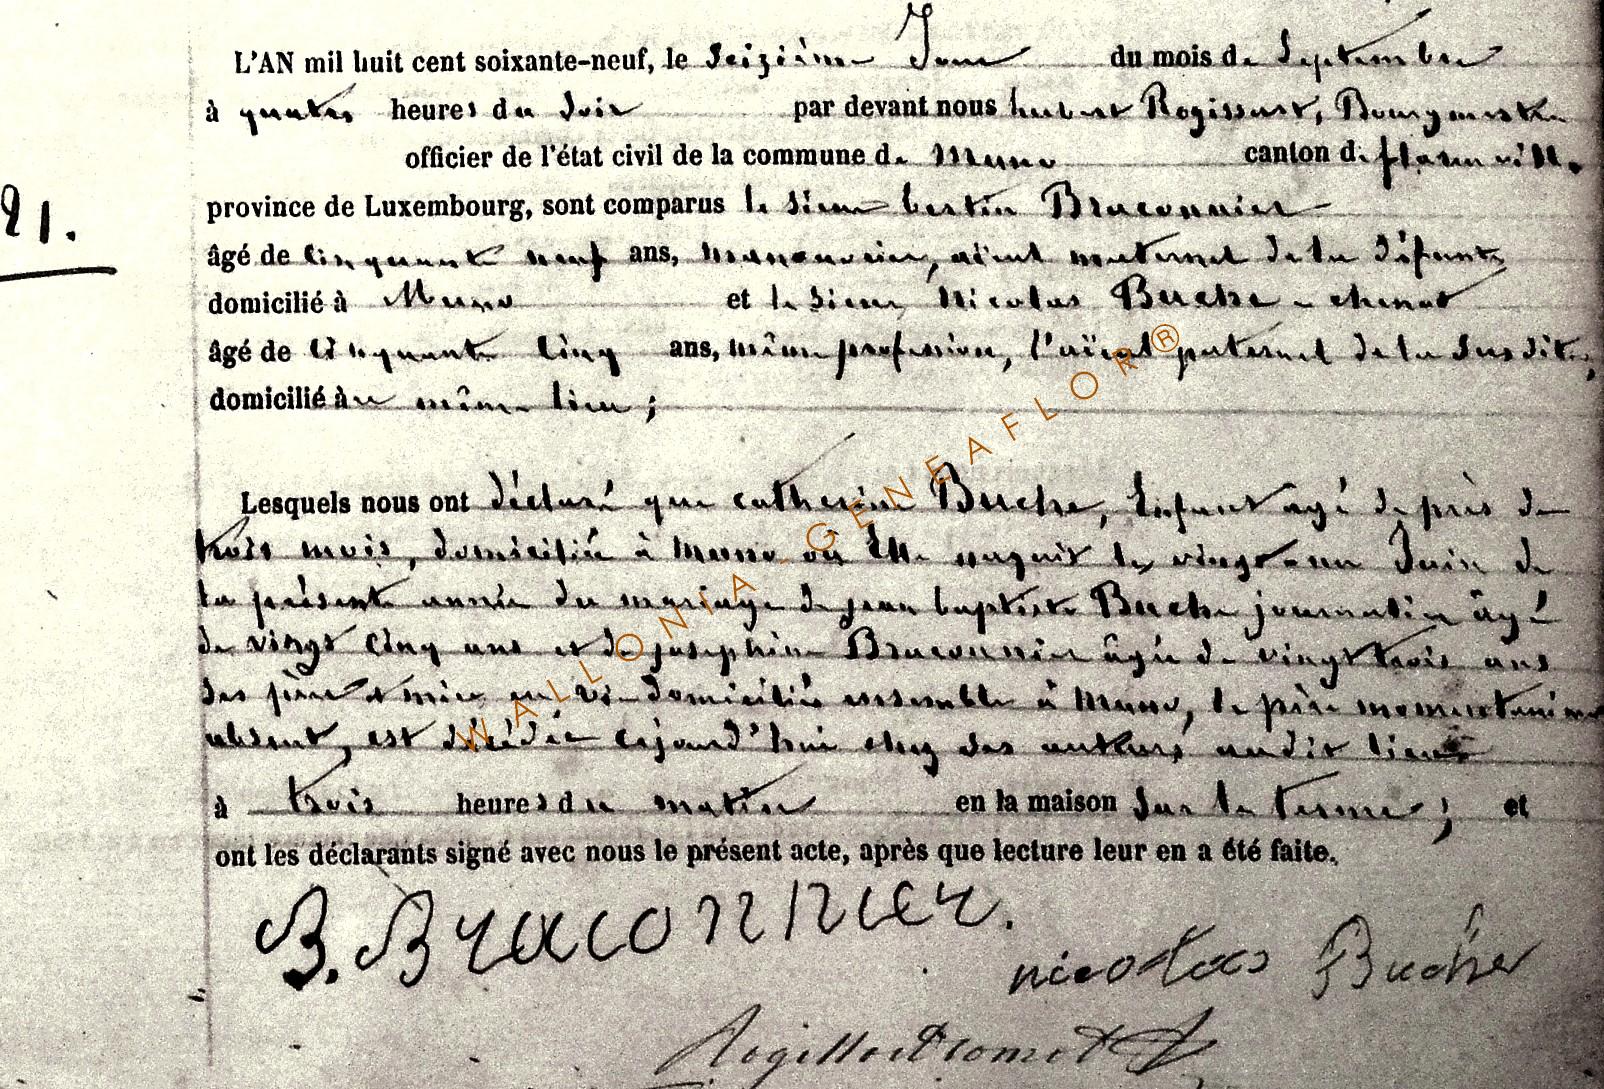 L'AN mil huit cent soixante-neuf, le seizième Jour du mois de Septembre
à quatre heures du soir par devant nous hubert Rogissart, Bourgmestre
officier de l'état civil de la commune de Muno canton de florenville.
21.
province de Luxembourg, sont comparus le sieur bertin Braconnier
âgé de cinquante neuf ans, manouvrier, aïeul maternel de la défunte
domicilié à Muno et le sieur Nicolas Buche - chenot
âgé de cinquante cinq ans, même profession, l'aïeul paternel de la susdite,
domicilié au même lieu ;
Lesquels nous ont déclaré que catherine Buche, Enfant agé de près de
trois mois, domiciliée à Muno où Elle naquit le vingt-un Juin de
la présente année du mariage de jean baptiste Buche journalier âgé
de vingt cinq ans et de josephine Braconnier âgée de vingt trois ans
ses père et mère en vie domiciliés ensemble à Muno, le père momentaniment
absent, est décédée cejourd'hui chez ses auteurs audit lieu
à trois heures du matin en la maison sur le terme ; et
ont les déclarants signé avec nous le présent acte, après que lecture leur en a été faite.
B. Braconnier.
nicolas Buche
WALLONIA - GENEAFLOR®